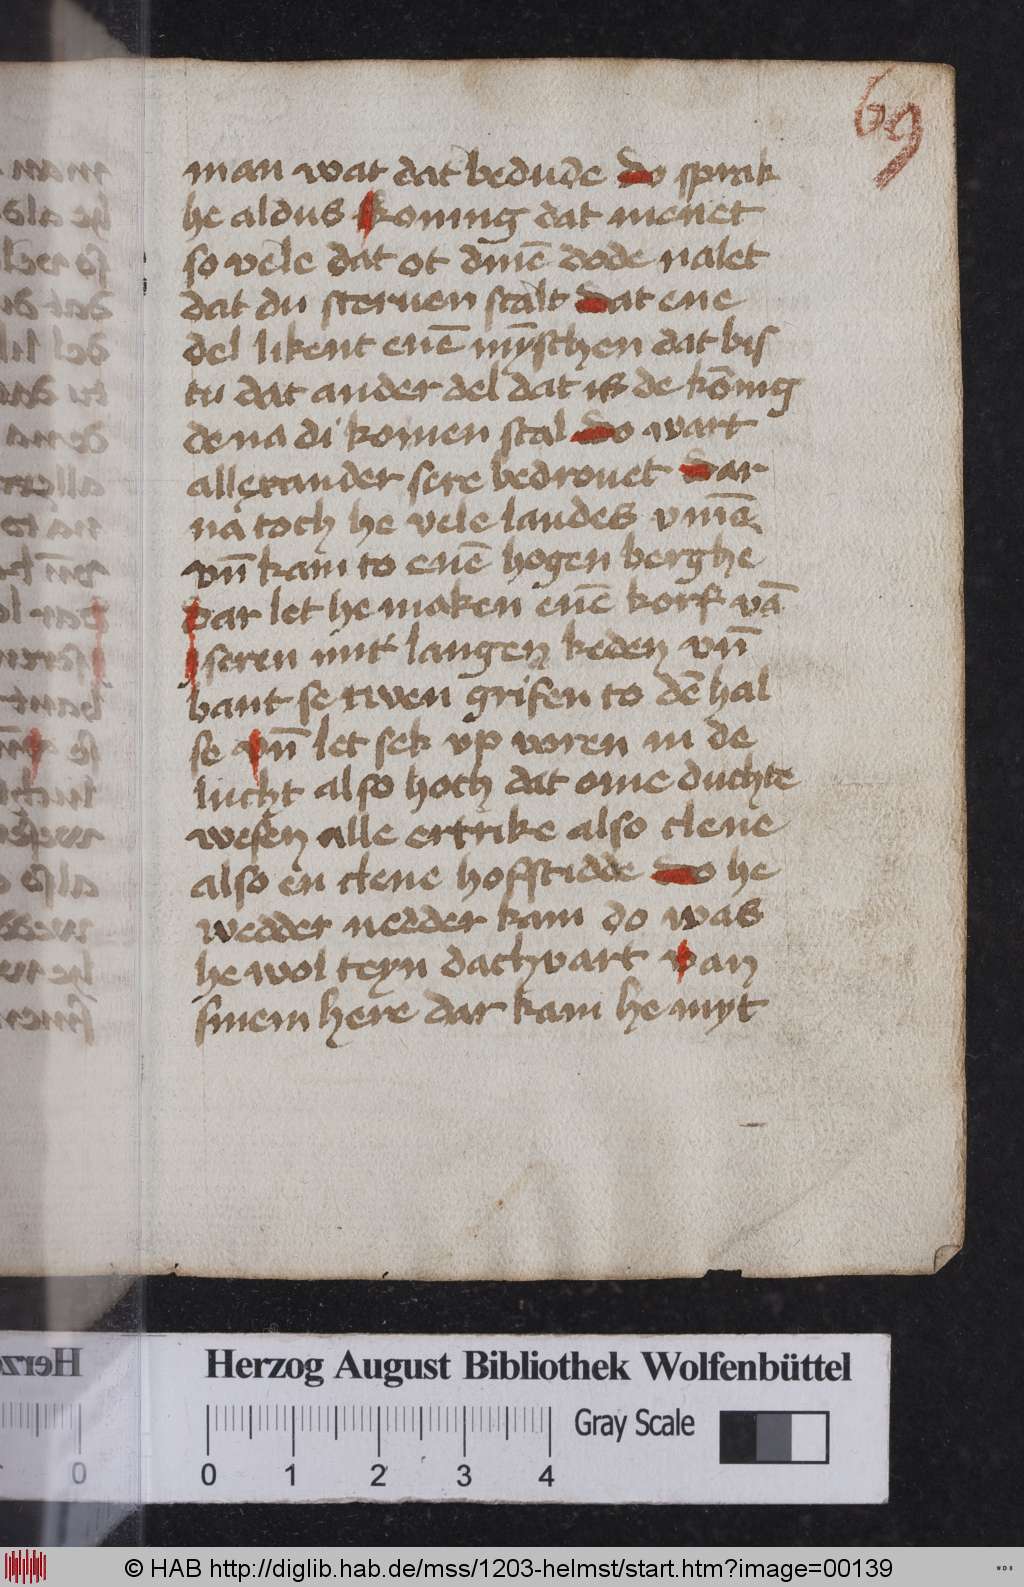 69
man wat dat bedude do sprak
he aldus koning dat menet
so vele dat ot dinē dode nalet
dat du steruen stalt dat ene
del likent enē mȳschen dat bis
tu dat ander del dat is de kōnig
de na di komen stal do wart
allexander sere bedrouet dar
na toch he vele landes vmē
vn̄ kam to enē hogen berghe
dar let he maken enē korf vā
yseren mit langen keden vn̄
bant se twen grifen to dē hal
se vn̄ let sek vp voren in de
lucht also hoch dat ome duchte
wesen alle ertrike also clene
also en clene hofstidde do he
wedder nedder kam do was
he wol teyn dachvart van
sinem here dar kam he myt
Herzog August Bibliothek Wolfenbüttel
Gray Scale
0 1 2 3 4
© HAB http://diglib.hab.de/mss/1203-helmst/start.htm?image=00139